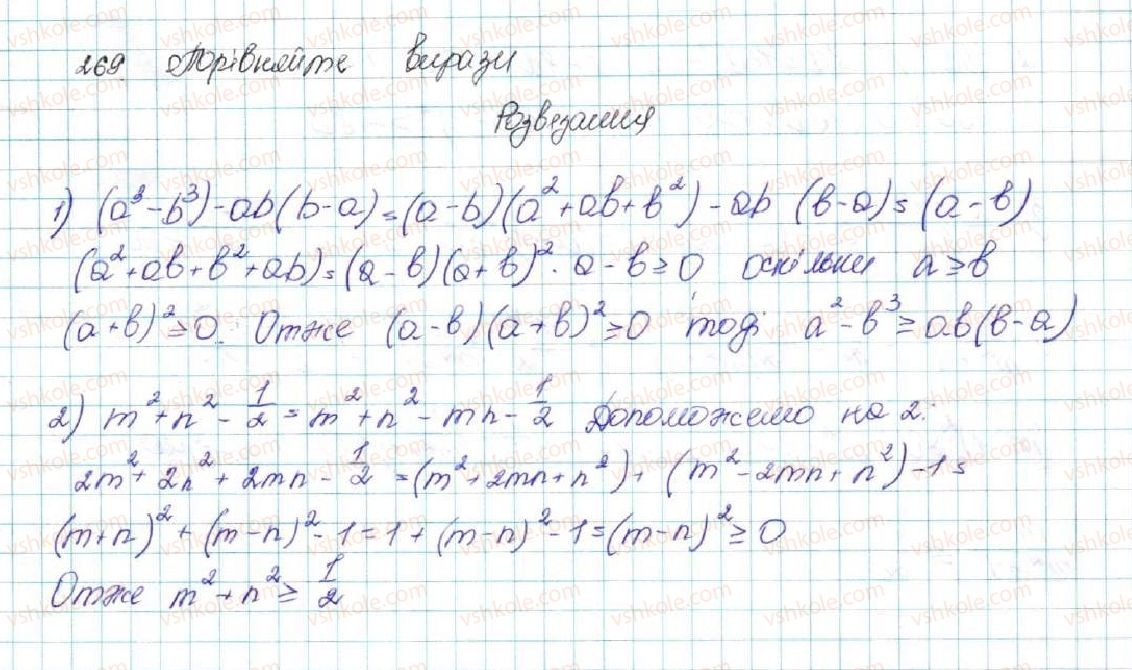 269. Порівняйте вирази
Розвезання
1) (a³-b³)-ab(b-a)=(a-b)(a²+ab+b²)-ab(b-a)=(a-b)
(a²+ab+b²+ab)=(a-b)(a+b)². a-b≥0 оскільки a≥b
(a+b)²≥0. Отже (a-b)(a+b)²≥0 тоді a²-b³≥ab(b-a)
2) m²+n²-1/2=m²+n²-mn-1/2 Допоможемо на 2:
2m²+2n²+2mn-1/2=(m²+2mn+n²)+(m²-2mn+n²)-1=
(m+n)²+(m-n)²-1=1+(m-n)²-1=(m-n)²≥0
Отже m²+n²≥1/2